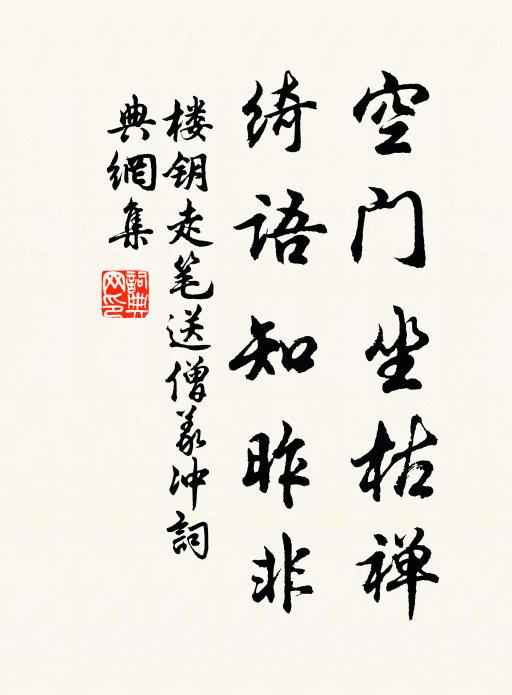 空门坐枯禅
绮语知昨非
楼钥走笔送僧义冲詞
典網集
詞典网印